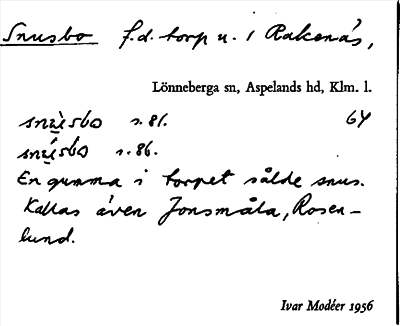 Snusbo f.d. torp u. 1 Rakenäs,
Lönneberga sn, Aspelands hd, Klm. l.
snu̱ìsbo s. 81. 64
snu̱ísbo s. 86.
En gumma i torpet sålde snus.
Kallas även Jonsmåla, Rosen-
lund.
Ivar Modéer 1956